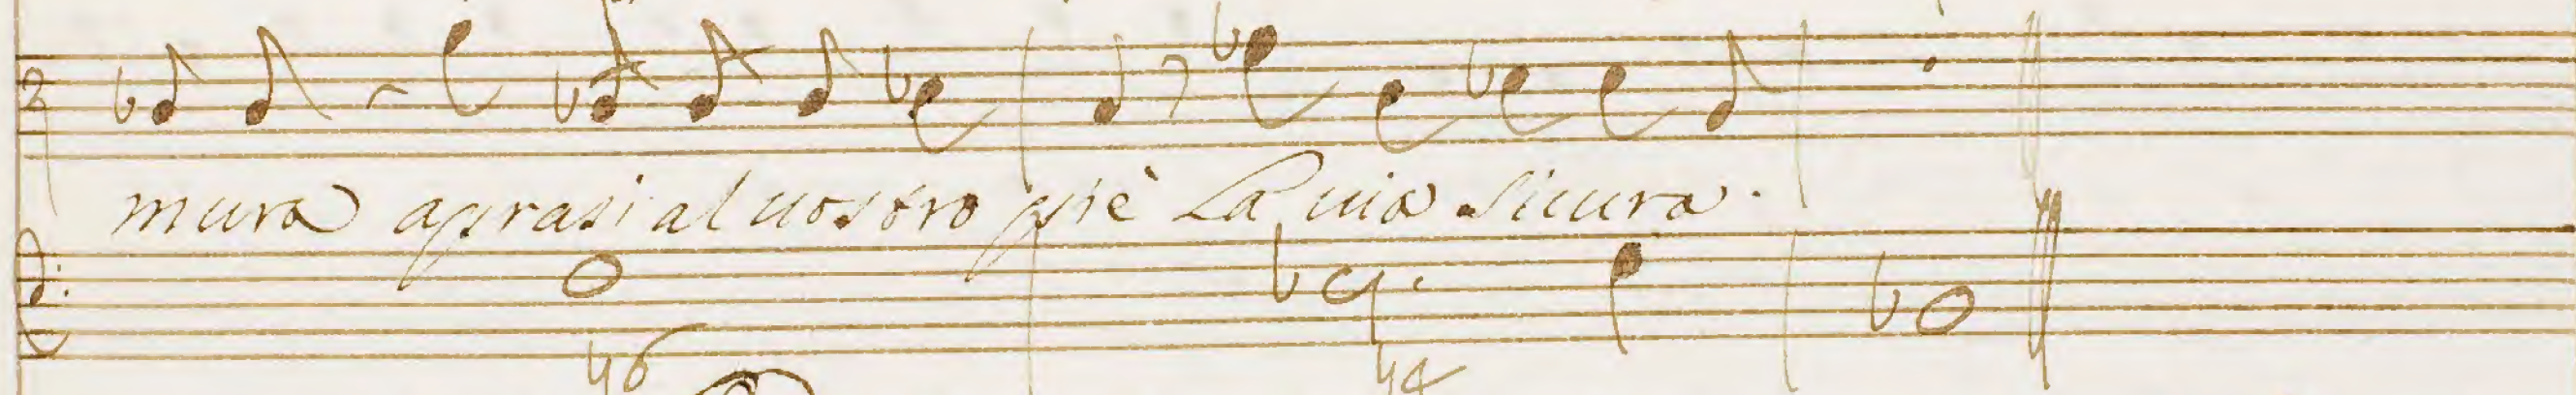 mura aprasi al uostro piè La uia sicura.
♮6 ♮4